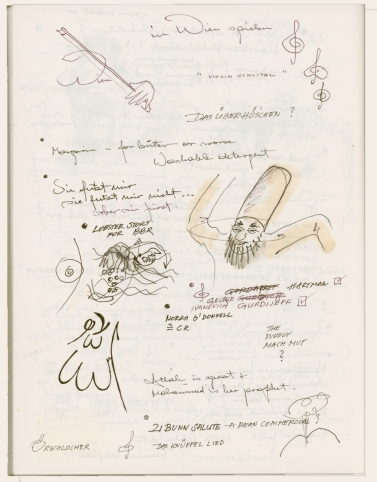 in Wien spielen
Wien
"VIOLIN SCHNITZEL"
DAS ÜBERHÖSCHEN ?
Margarine - for bitter or worse
Washable detergent
Sie fützt mir
sie fützt mir nicht...
aber sie fürzt.
LOBSTER STORY
FOR BBR
GEORGE HARTMAN
IVANOVICH GURDJIEFF
NORAH O'DONNELL
= CR
THE
WOOLY
MASH MUT
?
Allah is great &
Mohammed is her prophet.
21 BUNN SALUTE - A BEAN COMMERCIAL
ÖRSCHLOCHER
DAS KNÜPPEL LIED